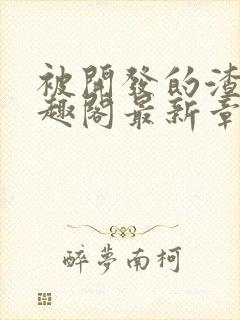 被開發的渣
趣閣最新章
醉夢南柯